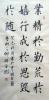 業精於勤荒於
嬉行成於思毀
於隨